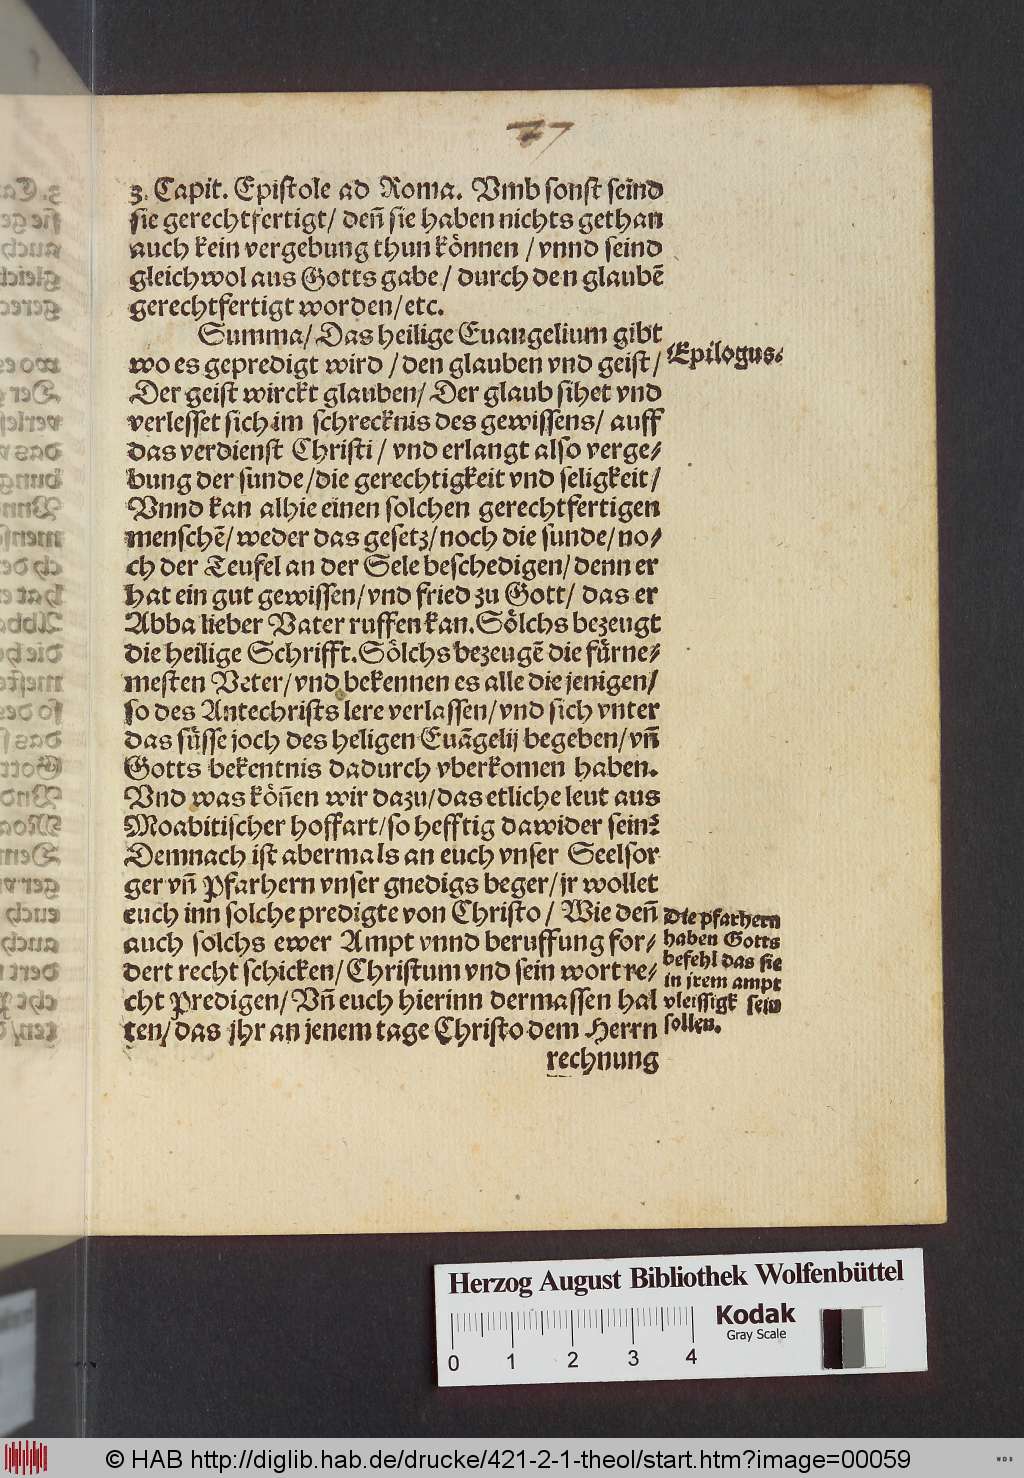 77
3. Capit. Epistole ad Roma. Vmb sonst seind
sie gerechtfertigt/ deñ sie haben nichts gethan
auch kein vergebung thun können / vnnd seind
gleichwol aus Gotts gabe / durch den glaubẽ
gerechtfertigt worden/ etc.
Summa/ Das heilige Euangelium gibt
wo es gepredigt wird / den glauben vnd geist/
Epilogus.
Der geist wirckt glauben/ Der glaub sihet vnd
verlesset sich im schrecknis des gewissens/ auff
das verdienst Christi / vnd erlangt also verge-
bung der sunde / die gerechtigkeit vnd seligkeit/
Vnnd kan alhie einen solchen gerechtfertigen
menschẽ/ weder das gesetz/ noch die sunde/ no-
ch der Teufel an der Sele beschedigen/ denn er
hat ein gut gewissen/ vnd fried zu Gott/ das er
Abba lieber Vater ruffen kan. Sölchs bezeugt
die heilige Schrifft. Sölchs bezeugẽ die fürne-
mesten Veter/ vnd bekennen es alle die jenigen/
so des Antechrists lere verlassen/ vnd sich vnter
das süsse joch des heligen Euãgelij begeben/ vñ
Gotts bekentnis dadurch vberkomen haben.
Vnd was köñen wir dazu/ das etliche leut aus
Moabitischer hoffart/ so hefftig dawider sein?
Demnach ist abermals an euch vnser Seelsor
ger vñ Pfarhern vnser gnedigs beger/ jr wollet
euch inn solche predigte von Christo / Wie deñ
auch solchs ewer Ampt vnnd beruffung for-
dert recht schicken/ Christum vnd sein wort re-
cht Predigen/ Vñ euch hierinn dermassen hal
ten/ das jhr an jenem tage Christo dem Herrn
Die pfarhern
haben Gotts
befehl das sie
in jrem ampt
vleissigk sein
sollen.
rechnung
Herzog August Bibliothek Wolfenbüttel
Kodak
Gray Scale
0 1 2 3 4
© HAB http://diglib.hab.de/drucke/421-2-1-theol/start.htm?image=00059